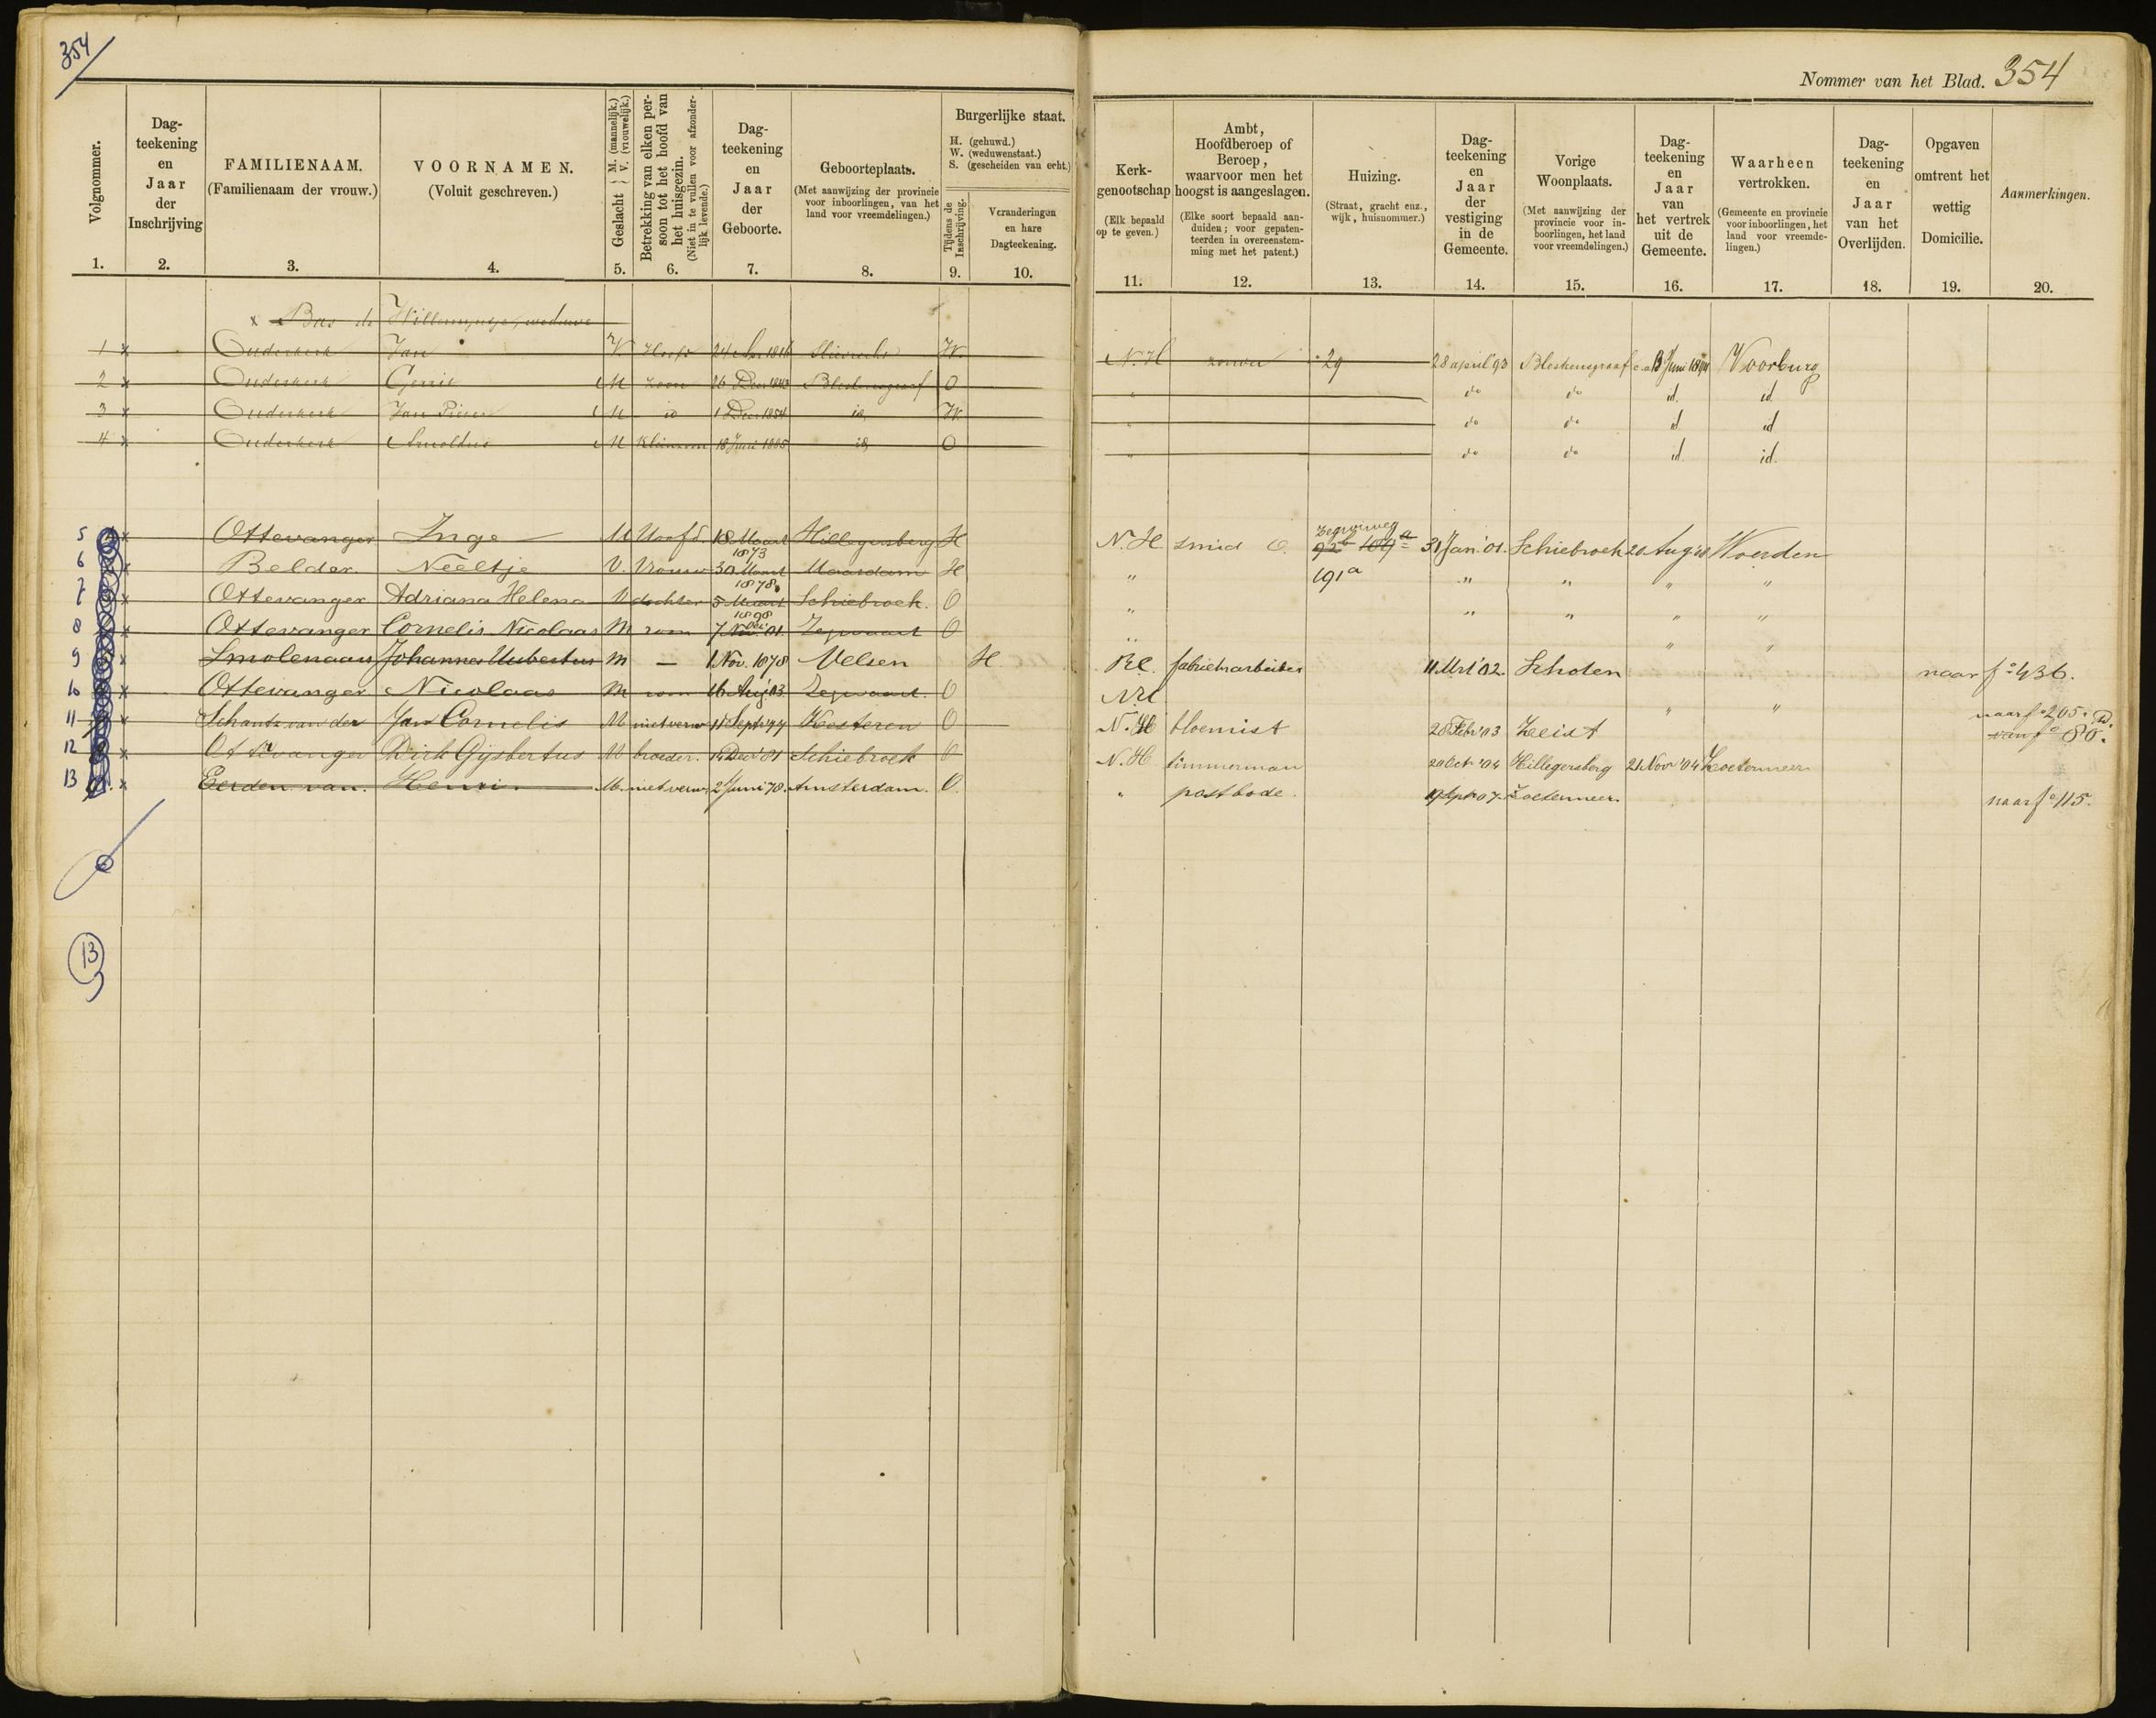 354
Nommer van het Blad. 354
Volgnommer. 1.
Dag-
teekening
en
Jaar
der
Inschrijving
2.
FAMILIENAAM.
(Familienaam der vrouw.)
3.
VOORNAMEN.
(Voluit geschreven.)
4.
Geslacht { M. (mannelijk.) V. (vrouwelijk.)
5.
Betrekking van elken per-
soon tot het hoofd van
het huisgezin.
(Niet in te vullen voor afzonder-
lijk levende.)
6.
Dag-
teekening
en
Jaar
der
Geboorte.
7.
Geboorteplaats.
(Met aanwijzing der provincie
voor inboorlingen, van het
land voor vreemdelingen.)
8.
Burgerlijke staat.
H. (gehuwd.)
W. (weduwenstaat.)
S. (gescheiden van echt.)
Tijdens de
Inschrijving.
9.
Veranderingen
en hare
Dagteekening.
10.
Kerk-
genootschap
(Elk bepaald
op te geven.)
11.
Ambt,
Hoofdberoep of
Beroep,
waarvoor men het
hoogst is aangeslagen.
(Elke soort bepaald aan-
duiden; voor gepaten-
teerden in overeenstem-
ming met het patent.)
12.
Huizing.
(Straat, gracht enz.,
wijk, huisnommer.)
13.
Dag-
teekening
en
Jaar
der
vestiging
in de
Gemeente.
14.
Vorige
Woonplaats.
(Met aanwijzing der
provincie voor in-
boorlingen, het land
voor vreemdelingen.)
15.
Dag-
teekening
en
Jaar
van
het vertrek
uit de
Gemeente.
16.
Waarheen
vertrokken.
(Gemeente en provincie
voor inboorlingen, het
land voor vreemde-
lingen.)
17.
Dag-
teekening
en
Jaar
van het
Overlijden.
18.
Opgaven
omtrent het
wettig
Domicilie.
19.
Aanmerkingen.
20.
x Bas de Willempje, weduwe
1 x Ouderkerk Jan V. Hoofd W. N. H 29 28 april '93 Bleskensgraaf 13 Juni 1894 Voorburg
2 x Ouderkerk Gerrit M zoon 26 Dec 1843 Bleskensgraaf O " do do id. id.
3 x Ouderkerk Jan Pieter M id 1 Dec 1854 id W. " do do id id
4 x Ouderkerk Arnoldus M Kleinzoon 18 Juni 1885 id O " do do id id.
5 x Ottevanger Inge M Hoofd. 18 Maart 1873 Hillegersberg H N. H smid Zegwaardweg 31 Jan. '01. Schiebroek Woerden
6 x Belder Neeltje V. Vrouw 30 Maart 1878. Maasdam H " 191a " " " "
7 x Ottevanger Adriana Helena V dochter 5 Maart 1898 Schiebroek. O " " " " "
8 x Ottevanger Cornelis Nicolaas M zoon 7 '01. Zegwaart O " " "
9 x Smolenaars Johannes Hubertus M — 1 Nov. 1878 Velsen H R.C. fabrieksarbeider 11 Mrt '02. Schoten naar fo 436.
10 x Ottevanger Nicolaas M zoon 16 Aug '03 Zegwaart. O N.H " "
11 x Schantz van der Jan Cornelis M niet verw 11 Sept Kesteren O N. H bloemist 28 Febr '03 Zeist naar fo 205. van fo 80.
12 x Ottevanger Dirk Gijsbertus M broeder. 14 Dec '81 Schiebroek O N. H timmerman 20 Oct '04 Hillegersberg 21 Nov '04 Zoetermeer
13 x Eerden van. Henri M. niet verw. 2 Juni '78. Amsterdam. O. " postbode. 19 Sept 07. Zoetermeer. naar fo 115.
13